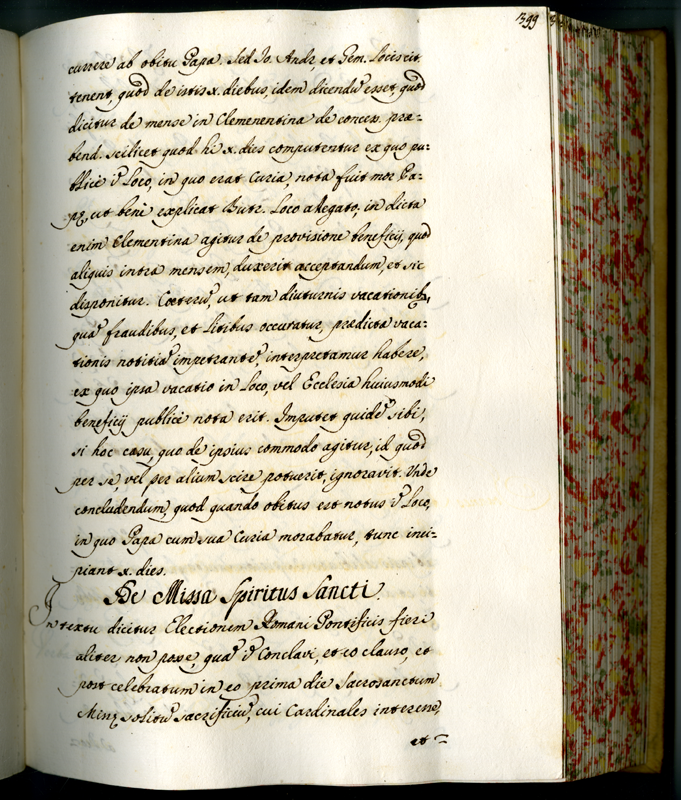 1399
currere ab obitu Papa. Sed Jo. Andr. et Gem. Locis cit.
tenent, quod de istis x. diebus, idem dicendũ esset, quod
dicitur de mense in Clemenentina de conces. præ-
bend. scilicet quod hi x. dies computentur ex quo pu-
blicè ĩ Loco, in quo erat Curia, nota fuit mors Pa-
pę, ut benè explicat Butr. Loco allegato, in dicta
enim Clementina agitur de provisione beneficij, quod
aliquis intra mensem, duxerit acceptandum, et sic
disponitur. Cœterũ, ut tam diuturnis vacationib,
quã fraudibus, et Litibus occuratur, predicta vaca-
tionis notitiã impetrantẽ, interpretamur habere,
ex quo ipsa vacatio in Loco, vel Ecclesia huiusmodi
beneficij publicè nota erit. Imputet quidẽ sibi,
si hoc casu, quo de ipsius commodo agitur, id quod
per se, vel per alium scire potuerit, ignoravit. Unde
concludendum, quod quando obitus est notus ĩ Loco,
in quo Papa cum sua Curia morabatur, tunc inci-
piant x. dies.
De Missa Spiritus Sancti
In textu dicitur Electionem Romani Pontificis fieri
aliter non posse, quã ĩ Conclavi, et eo clauso, et
post celebratum in eo prima die Sacrosanctum
Missę solitũ sacrificiũ, cui Cardinales interesse,
et